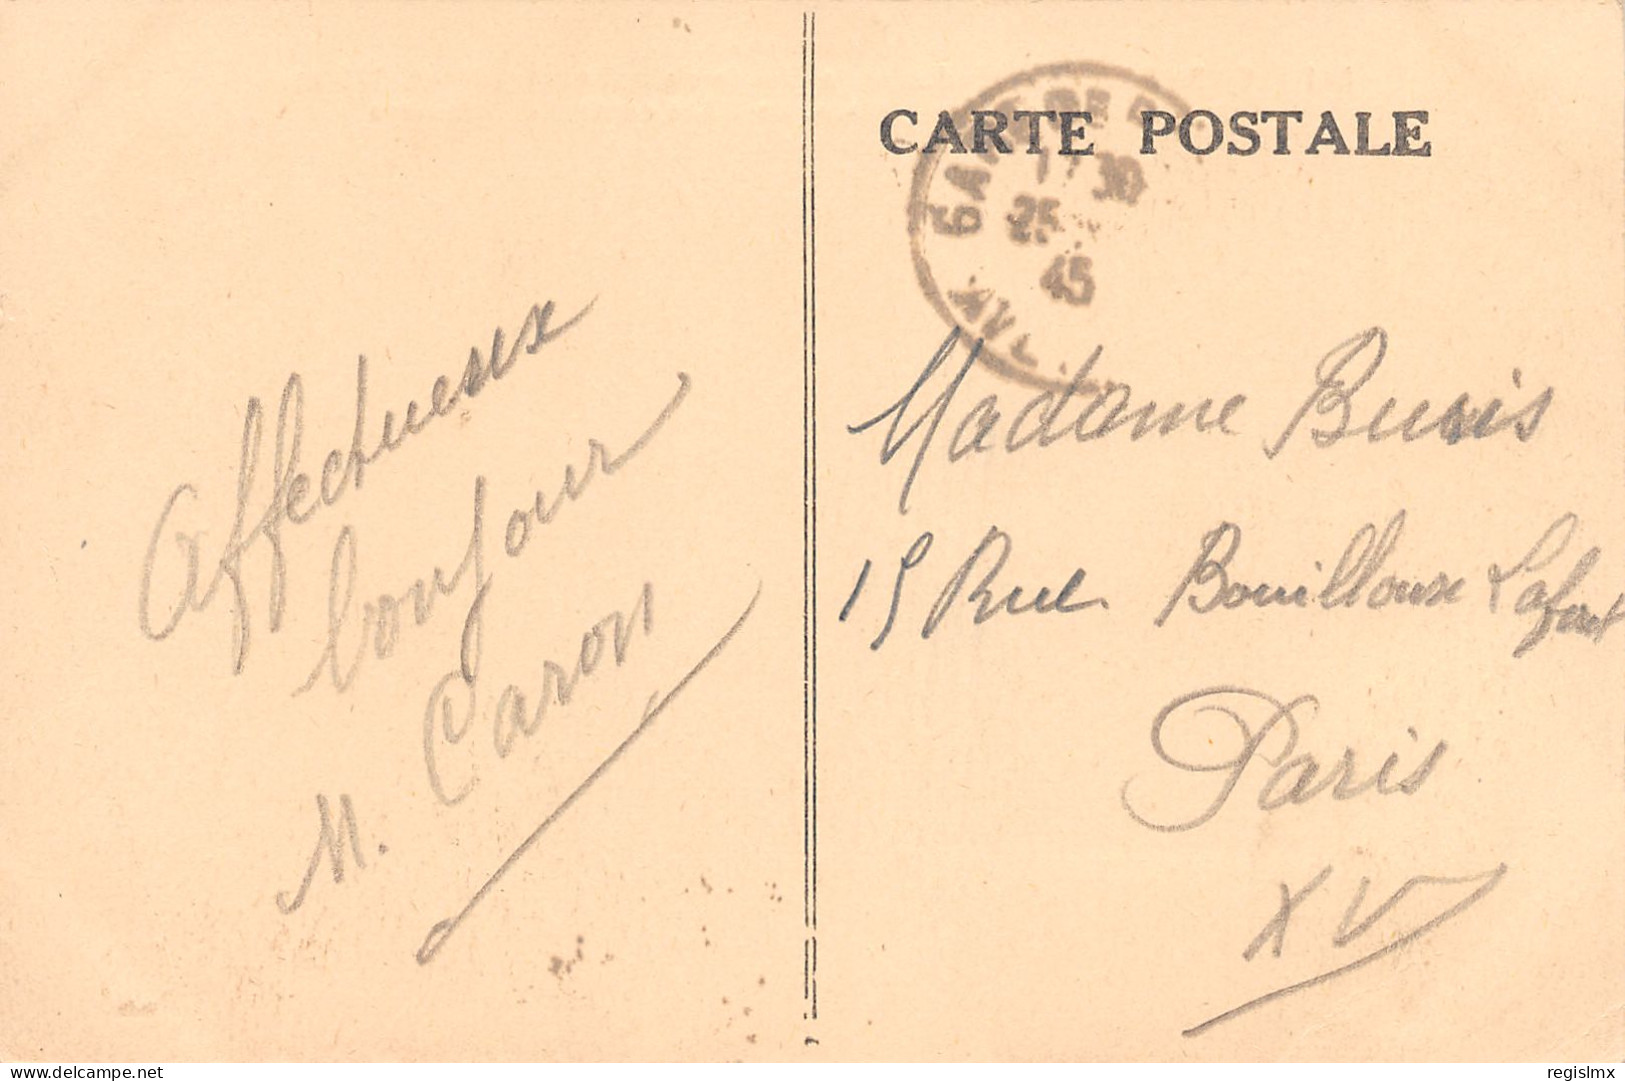 CARTE POSTALE
GARE DE
17 30
25
45
Affectueux
bonjour
M. Caron
Madame
15 Rue Bouilloux Lafont
Paris
XV
www.delcampe.net
regislmx